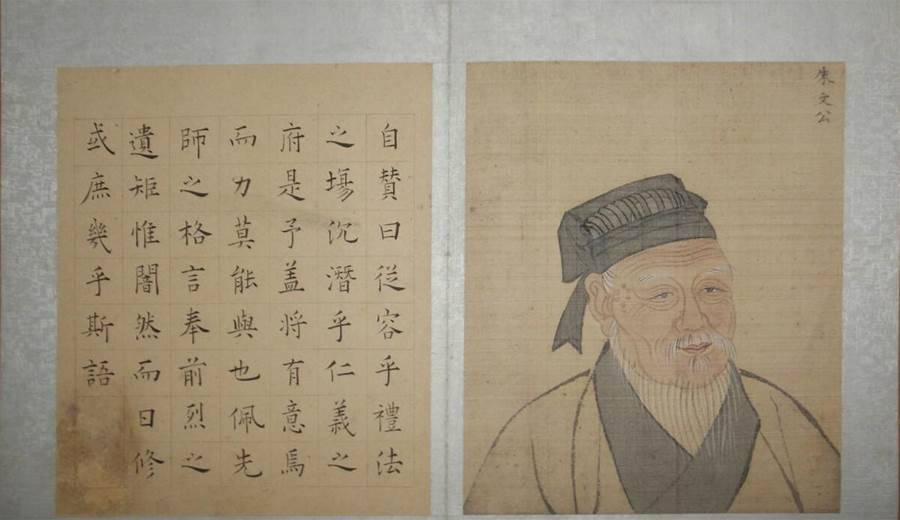 朱文公
自賛曰從容乎禮法
之場沉潛乎仁義之
府是予盖将有意焉
而力莫能與也佩先
師之格言奉前烈之
遺矩惟闇然而日修
或庶幾乎斯語